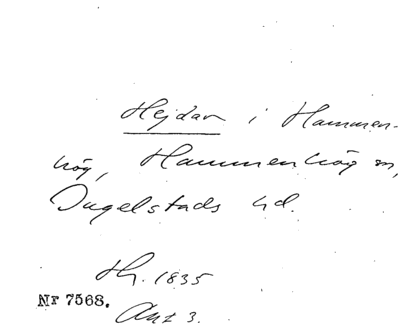 Hejdar i Hammen-
hög, Hammenhög sn,
Ingelstads hd.
Hh. 1835
Nr 7568.
Akt 3.